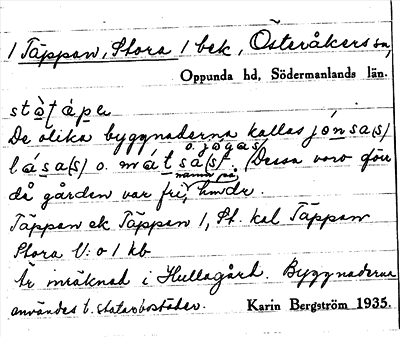 / Täppan, Stora / bek, Österåkers sn,
Oppunda hd, Södermanlands län.
stò̱ṯ á̱pe
De olika byggnaderna kallas jó̱nsa(s)
o. jógas/
lá̱sa(s) o. má̱tsa(s). (Dessa voro förr
namn på
då gården var fri, hmdr.
Täppan ek Täppan 1, St. kal Täppan
Stora U: o 1 kb
Är inräknad i Hullagård. Byggnaderna
användes t. statarbostäder. Karin Bergström 1935.